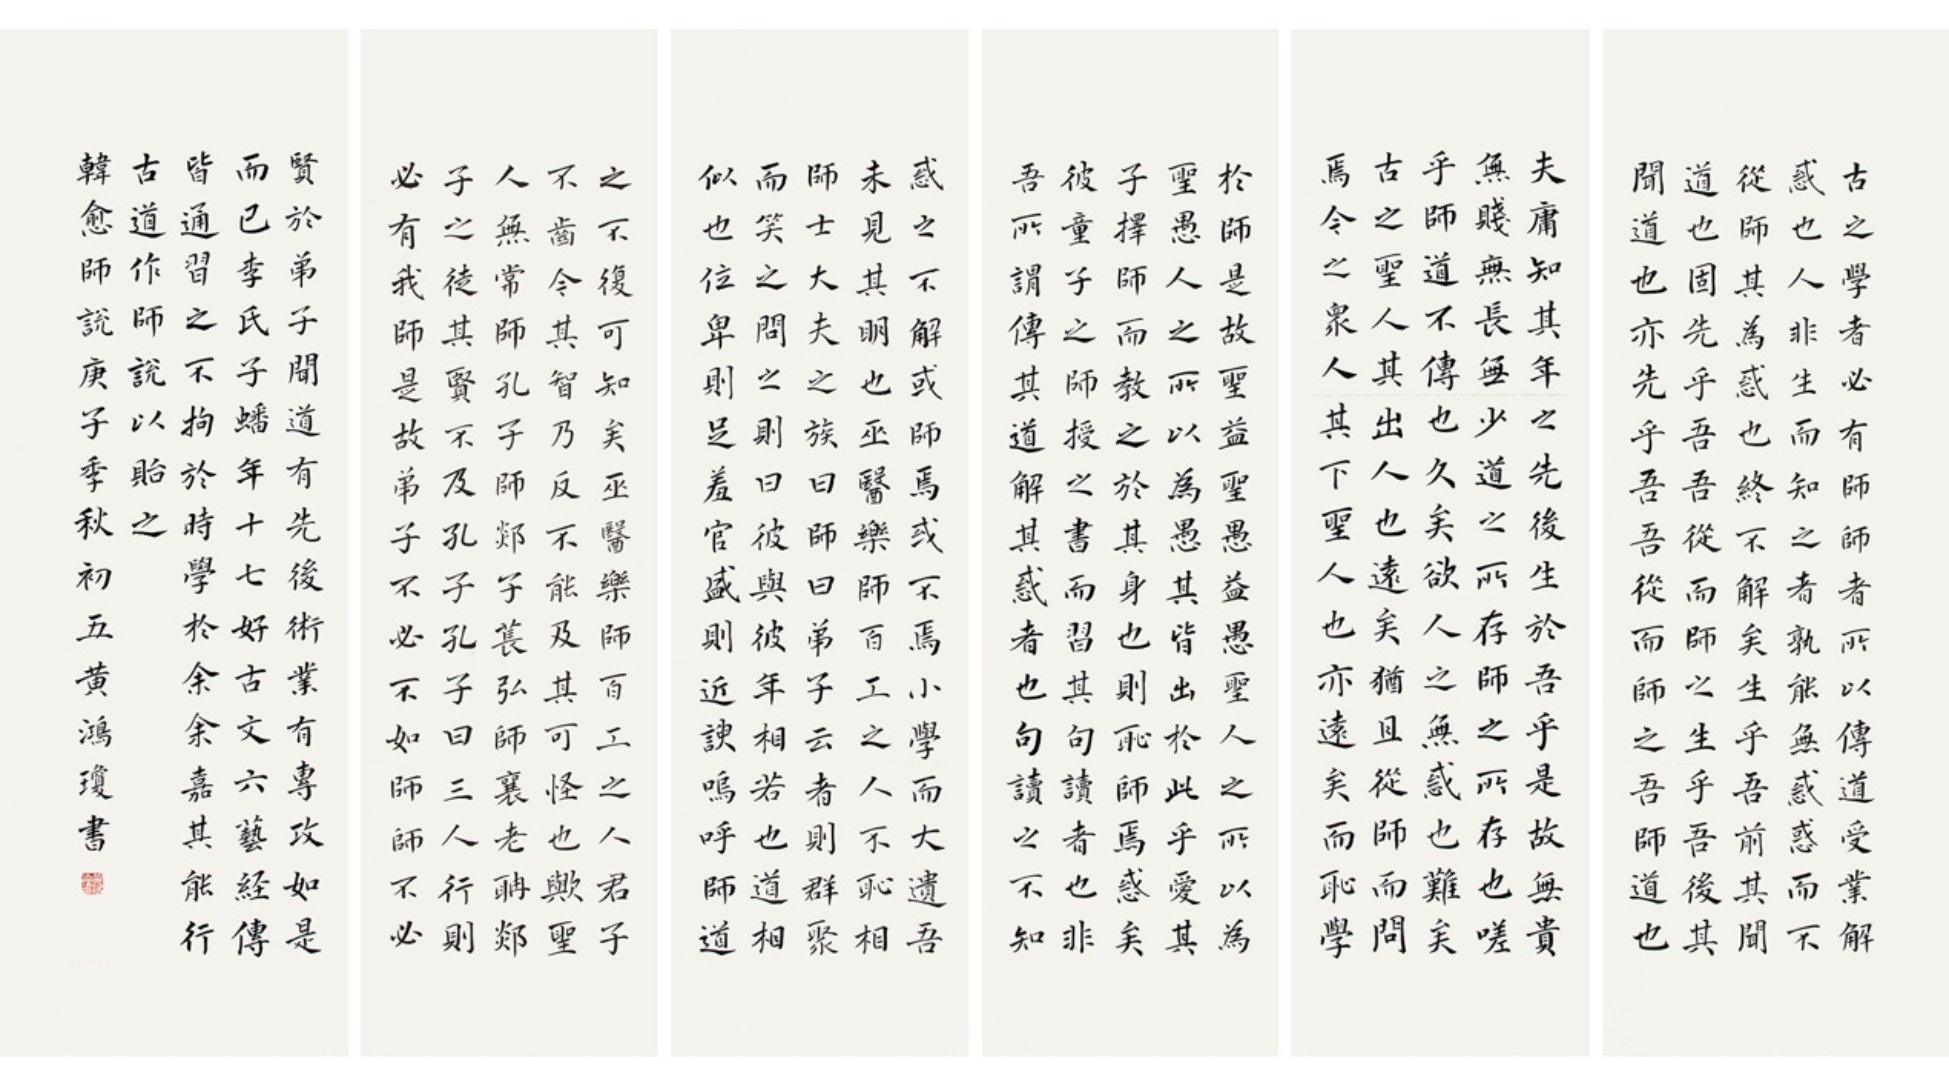 古之學者必有師師者所以傳道受業解
惑也人非生而知之者孰能無惑惑而不
從師其為惑也終不解矣生乎吾前其聞
道也固先乎吾吾從而師之生乎吾後其
聞道也亦先乎吾吾從而師之吾師道也
夫庸知其年之先後生於吾乎是故無貴
無賤無長無少道之所存師之所存也嗟
乎師道不傳也久矣欲人之無惑也難矣
古之聖人其出人也遠矣猶且從師而問
焉今之眾人其下聖人也亦遠矣而恥學
於師是故聖益聖愚益愚聖人之所以為
聖愚人之所以為愚其皆出於此乎愛其
子擇師而教之於其身也則恥師焉惑矣
彼童子之師授之書而習其句讀者也非
吾所謂傳其道解其惑者也句讀之不知
惑之不解或師焉或不焉小學而大遺吾
未見其明也巫醫樂師百工之人不恥相
師士大夫之族曰師曰弟子云者則群聚
而笑之問之則曰彼與彼年相若也道相
似也位卑則足羞官盛則近諛嗚呼師道
之不復可知矣巫醫樂師百工之人君子
不齒今其智乃反不能及其可怪也歟聖
人無常師孔子師郯子萇弘師襄老聃郯
子之徒其賢不及孔子孔子曰三人行則
必有我師是故弟子不必不如師師不必
賢於弟子聞道有先後術業有專攻如是
而已李氏子蟠年十七好古文六藝經傳
皆通習之不拘於時學於余余嘉其能行
古道作師說以貽之
韓愈師說庚子季秋初五黃鴻瓊書